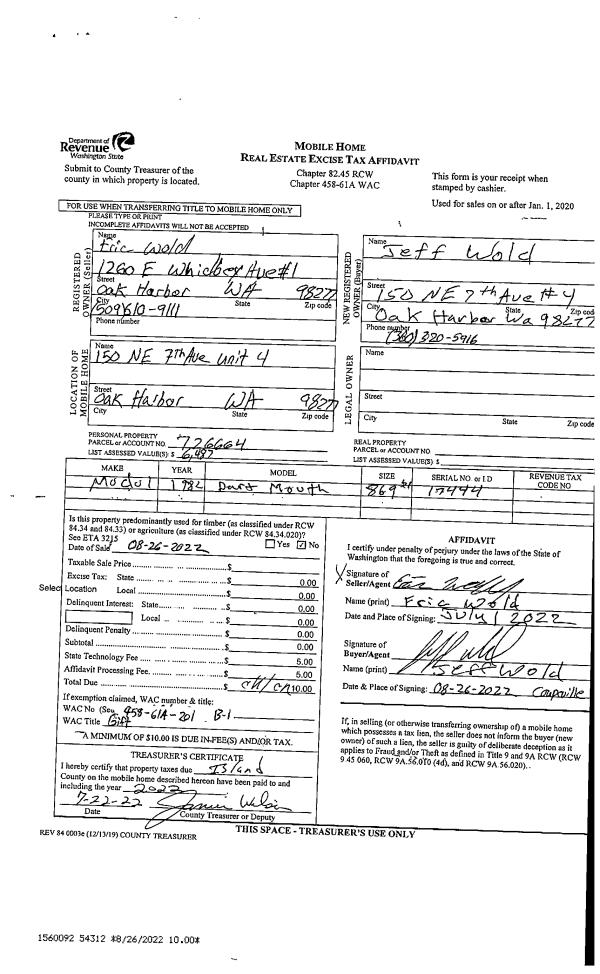 Department of
Revenue
Washington State
Submit to County Treasurer of the
county in which property is located.
MOBILE HOME
REAL ESTATE EXCISE TAX AFFIDAVIT
Chapter 82.45 RCW
Chapter 458-61A WAC
This form is your receipt when
stamped by cashier.
Used for sales on or after Jan. 1, 2020
FOR USE WHEN TRANSFERRING TITLE TO MOBILE HOME ONLY
PLEASE TYPE OR PRINT
INCOMPLETE AFFIDAVITS WILL NOT BE ACCEPTED
REGISTERED
OWNER (Seller)
Name
Eric Wold
1260 E Whidbey Ave #1
Street
Oak Harbor WA 98277
City State Zip code
(509)610-9111
Phone number
NEW REGISTERED
OWNER (Buyer)
Name
Jeff Wold
Street
150 NE 7th Ave #4
City State Zip cod
Oak Harbor Wa 98277
Phone number
(360)320-5916
LOCATION OF
MOBILE HOME
Name
150 NE 7th Ave unit 4
Street
Oak Harbor WA 98277
City State Zip code
LEGAL OWNER
Name
Street
City State Zip code
PERSONAL PROPERTY
PARCEL or ACCOUNT NO. 726664
LIST ASSESSED VALUE(S): $ 6,487
REAL PROPERTY
PARCEL or ACCOUNT NO.
LIST ASSESSED VALUE(S): $
MAKE YEAR MODEL SIZE SERIAL NO. or I.D REVENUE TAX
CODE NO
Modul 1982 Dart Mouth 869 17494
Is this property predominantly used for timber (as classified under RCW
84.34 and 84.33) or agriculture (as classified under RCW 84.34.020)?
See ETA 3215 Yes No
Date of Sale 08-26-2022
Taxable Sale Price $
Excise Tax: State $ 0.00
Select Location Local $ 0.00
Delinquent Interest: State $ 0.00
Local $ 0.00
Delinquent Penalty $ 0.00
Subtotal $ 0.00
State Technology Fee $ 5.00
Affidavit Processing Fee $ 5.00
Total Due $ 10.00
If exemption claimed, WAC number & title:
WAC No (Sec 458-61A-201 B-1
WAC Title Gift
A MINIMUM OF $10.00 IS DUE IN FEE(S) AND/OR TAX.
TREASURER'S CERTIFICATE
I hereby certify that property taxes due Island
County on the mobile home described hereon have been paid to and
including the year 2022
7-22-22
Date County Treasurer or Deputy
AFFIDAVIT
I certify under penalty of perjury under the laws of the State of
Washington that the foregoing is true and correct.
Signature of
Seller/Agent Eric Wold
Name (print) Eric Wold
Date and Place of Signing: July 1 2022
Signature of
Buyer/Agent
Name (print) Jeff Wold
Date & Place of Signing: 08-26-2022 Coupeville
If, in selling (or otherwise transferring ownership of) a mobile home
which possesses a tax lien, the seller does not inform the buyer (new
owner) of such a lien, the seller is guilty of deliberate deception as it
applies to Fraud and/or Theft as defined in Title 9 and 9A RCW (RCW
9.45 060, RCW 9A.56.010 (4d), and RCW 9A.56.020).
THIS SPACE - TREASURER'S USE ONLY
REV 84 0003e (12/13/19) COUNTY TREASURER
1560092 54312 *8/26/2022 10.00*